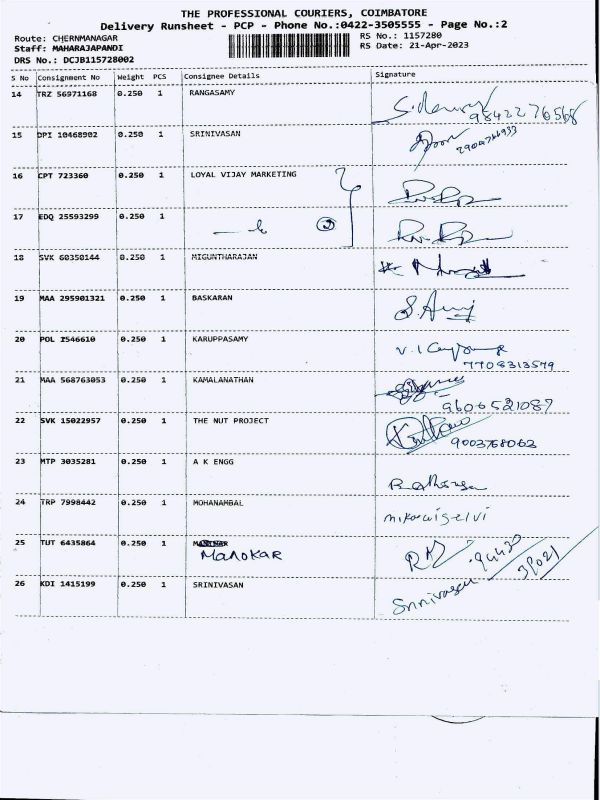 THE PROFESSIONAL COURIERS, COIMBATORE
Delivery Runsheet - PCP - Phone No.:0422-3505555 - Page No.:2
Route: CHERNMANAGAR RS No.: 1157280
Staff: MAHARAJAPANDI RS Date: 21-Apr-2023
DRS No.: DCJB115728002
S No Consignment No Weight PCS Consignee Details Signature
14 TRZ 56971168 0.250 1 RANGASAMY
9842276568
15 DPI 10468902 0.250 1 SRINIVASAN
16 CPT 723360 0.250 1 LOYAL VIJAY MARKETING
17 EDQ 25593299 0.250 1
2
18 SVK 60350144 0.250 1 MIGUNTHARAJAN
19 MAA 295901321 0.250 1 BASKARAN
20 POL 1546610 0.250 1 KARUPPASAMY
7708313579
21 MAA 568763053 0.250 1 KAMALANATHAN
9606521087
22 SVK 15022957 0.250 1 THE NUT PROJECT
9003768063
23 MTP 3035281 0.250 1 A K ENGG
24 TRP 7998442 0.250 1 MOHANAMBAL
25 TUT 6435864 0.250 1
MANOKAR
26 KDI 1415199 0.250 1 SRINIVASAN Srinivasan